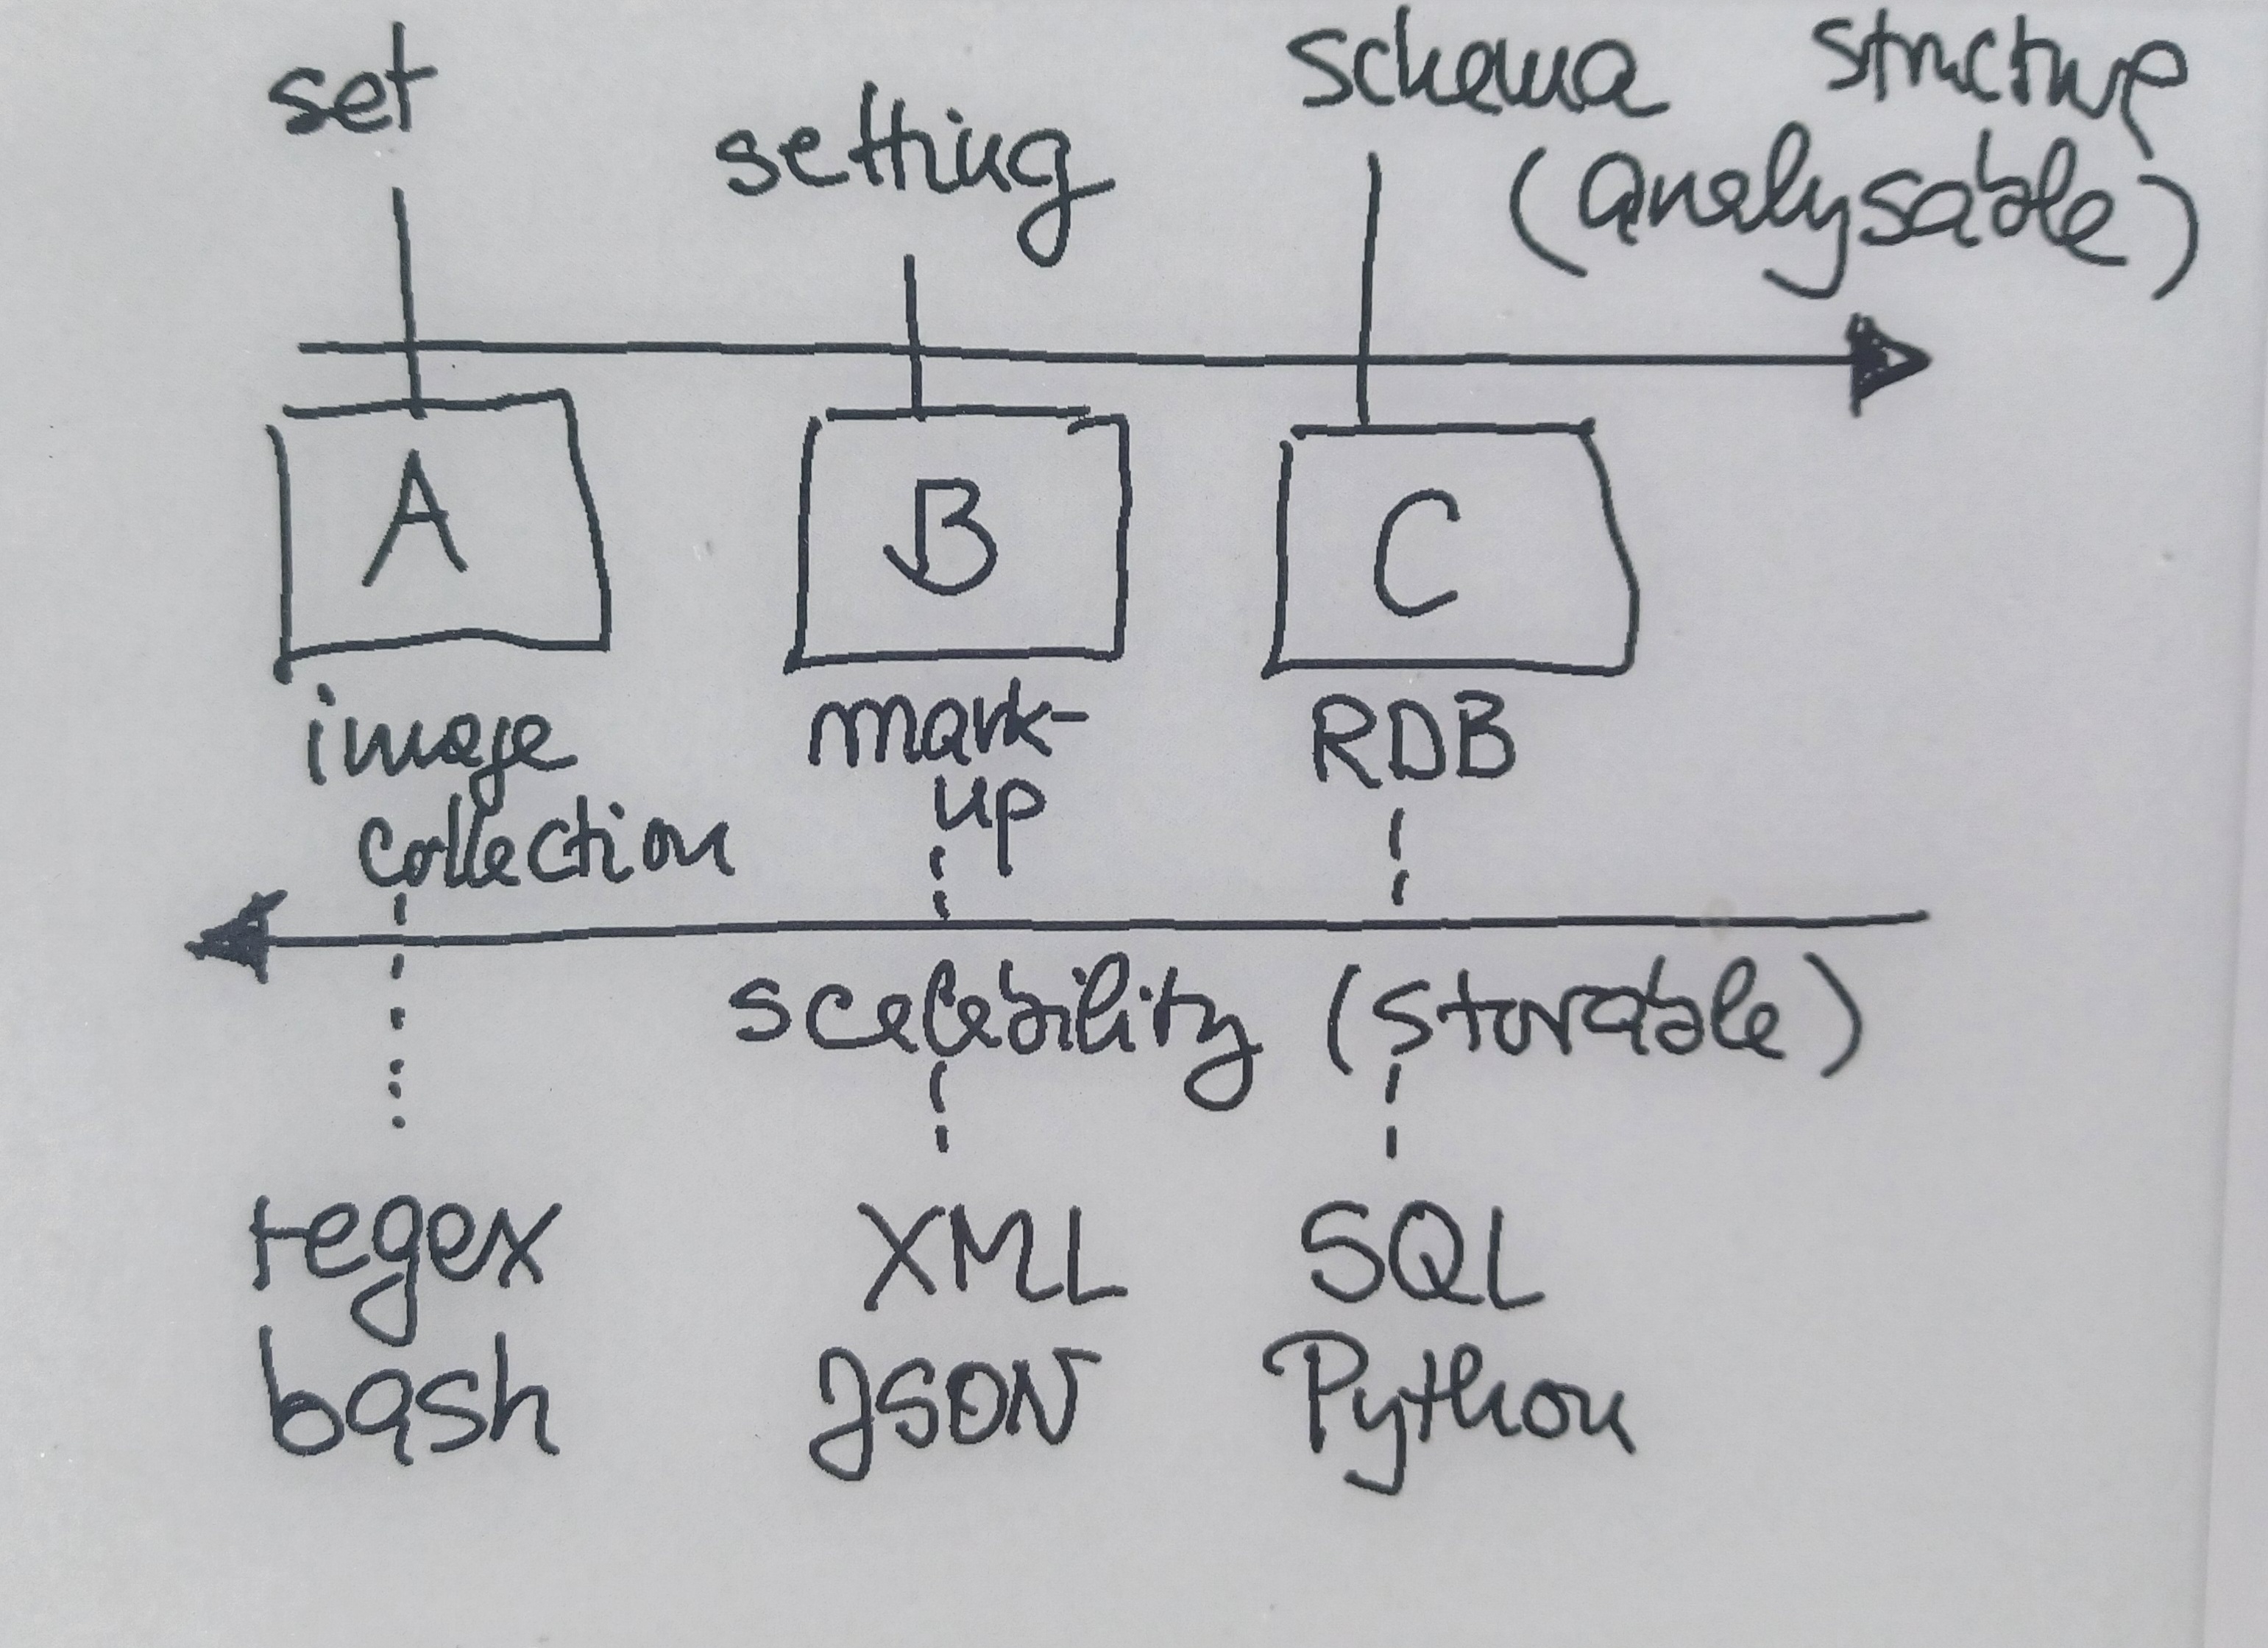 set
setting
schema structure
(analysable)
A B C
image
collection
mark-
up
RDB
scalability (storable)
regex XML SQL
bash JSON Python